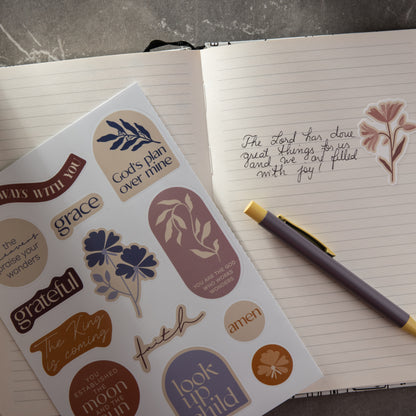 WAYS WITH YOU
God's plan
over mine
grace
the
praise your
wonders
grateful
YOU ARE THE GOD
WHO WORKS
WONDERS
The King
is coming
faith
amen
YOU
ESTABLISHED
moon
AND THE
sun
look
up
child
The Lord has done
great things for us
and we are filled
with joy!